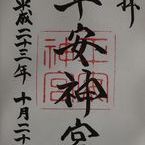 拝
平安神宮
平成二十三年十月二十